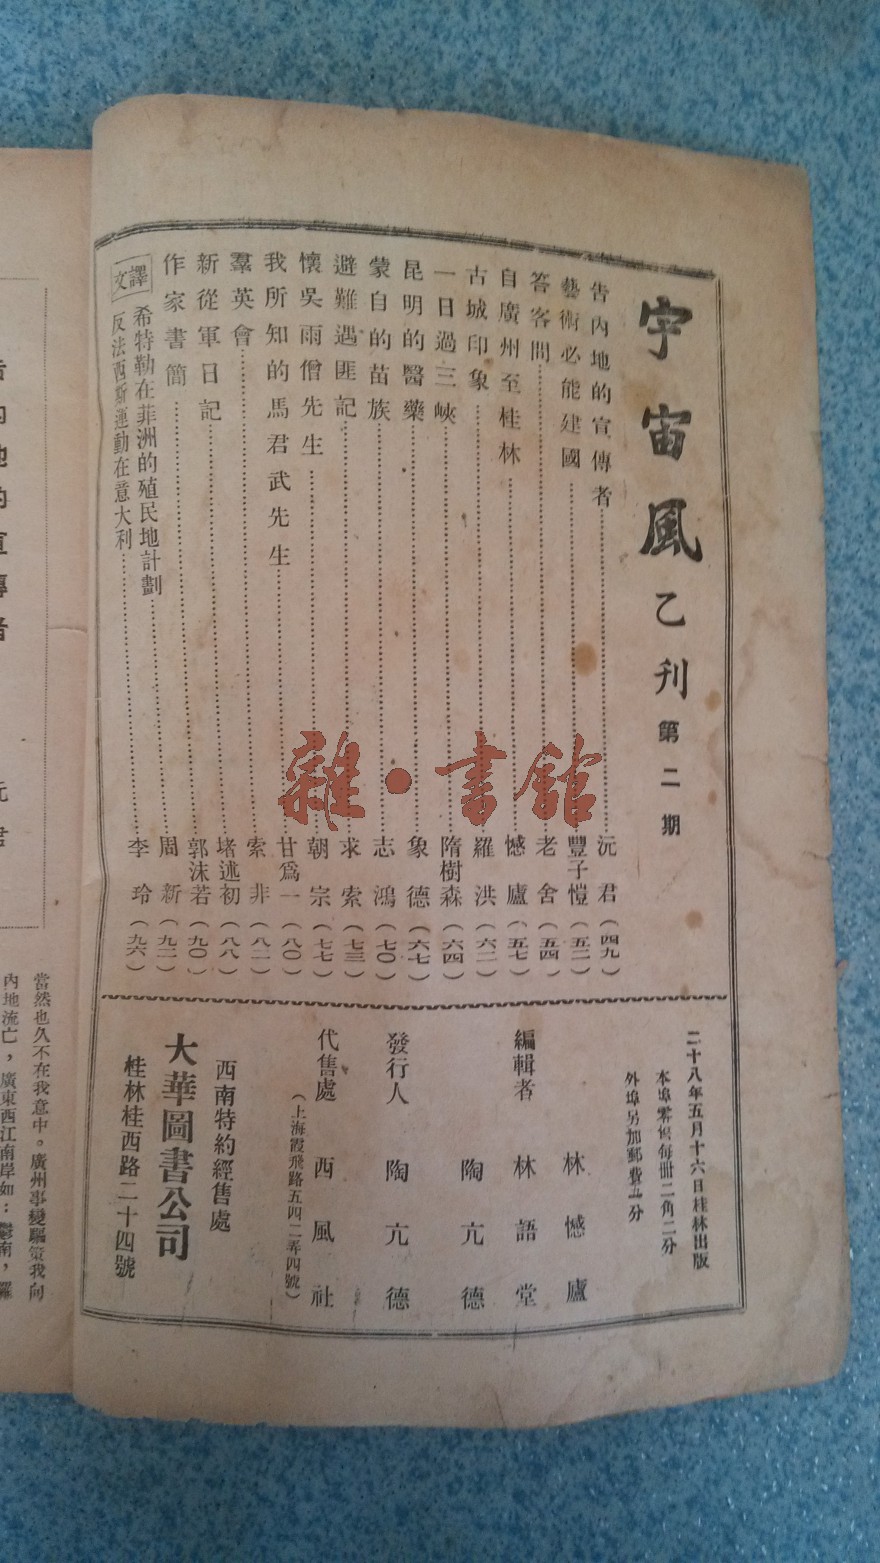 宇宙風 乙刊 第二期
告內地的宣傳者 沅君(四九)
藝術必能建國 豐子愷(五二)
答客問 老舍(五四)
自廣州至桂林 憾廬(五七)
古城印象 羅洪(六二)
一日過三峽 隋樹森(六四)
昆明的醫藥 象德(六七)
蒙自的苗族 志鴻(七〇)
避難遇匪記 求索(七三)
懷吳雨僧先生 朝宗(七七)
我所知的馬君武先生 甘爲一(八〇)
羣英會 索非(八二)
新從軍日記 堵述初(八八)
作家書簡 郭沫若(九〇)
譯文
希特勒在菲洲的殖民地計劃 周新(九二)
反法西斯運動在意大利 李玲(九六)
二十八年五月十六日桂林出版
本埠零售每冊二角二分
外埠另加郵費五分
林憾廬
編輯者 林語堂
陶亢德
發行人 陶亢德
代售處 西風社
(上海霞飛路五四二弄四號)
西南特約經售處
大華圖書公司
桂林桂西路二十四號
告內地的宣傳者
沅君
當然也久不在我意中。廣州事變驅策我向
內地流亡,廣東西江南岸如:鬱南,羅
雜·書館